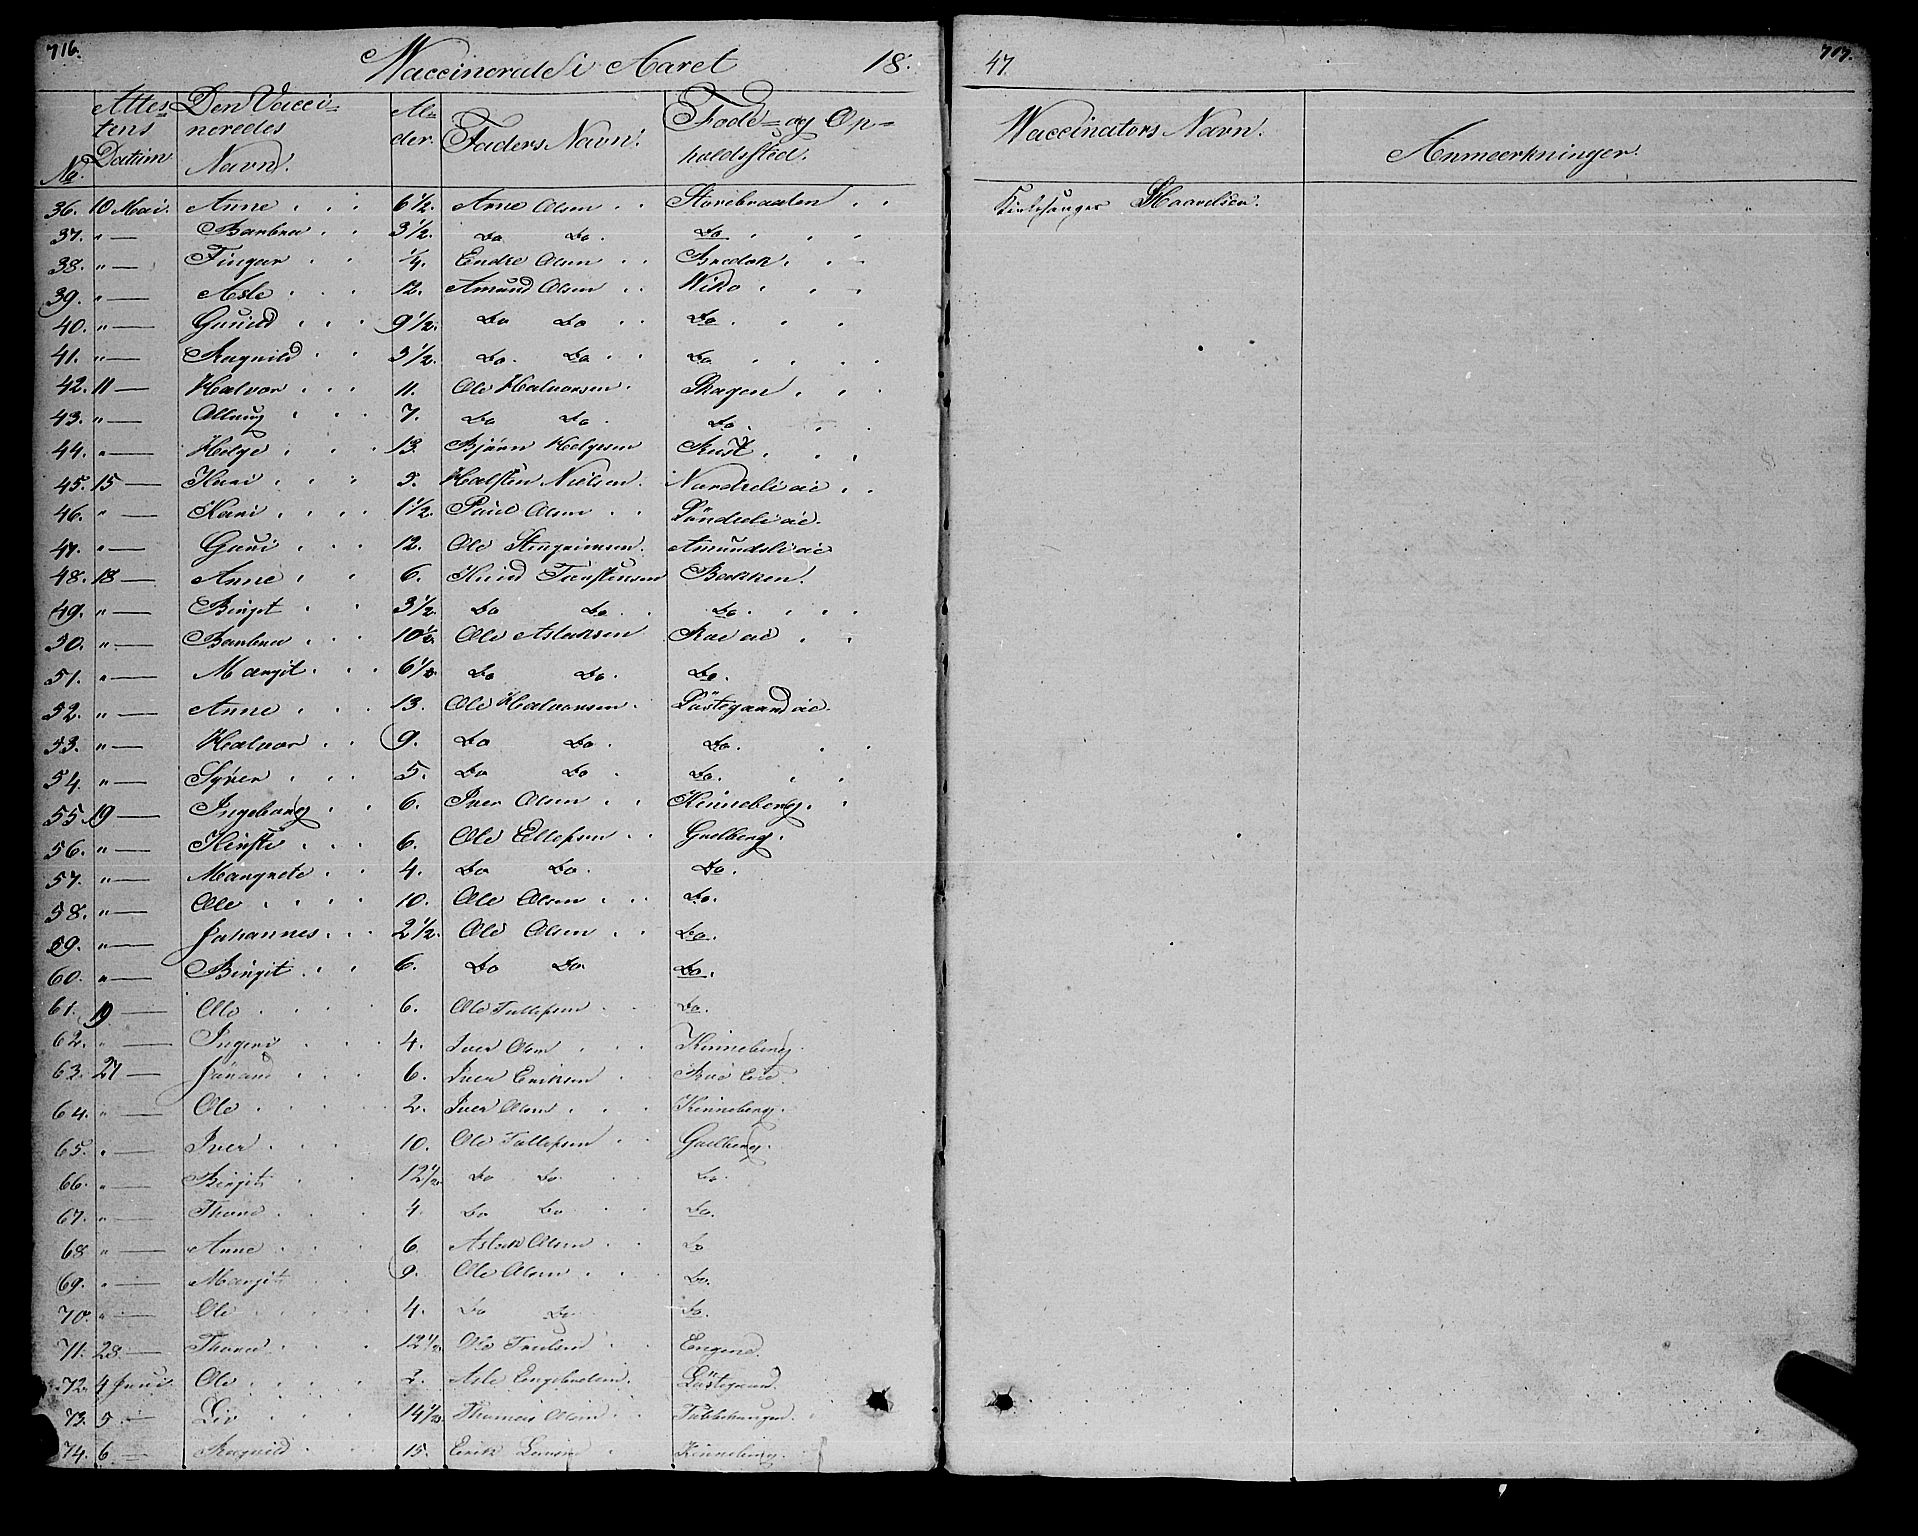 716. Waccinerede i Aaret 18. 47. 717.
No. Attestens Datum Den Vaccineredes Navn. Alder. Faders Navn. Föde- og Opholdssted. Waccinators Navn. Anmærkninger.
36. 10 Mai. Anne 6 1/2. Arne Olsen Storebraaten Kirkesanger Haavelsen.
37. " — Barbra 3 1/2. Do Do. Do
38. " — 1/4. Endre Olsen
39. " — Asle 12. Amund Olsen Wiko
40. " — Gunild 9 1/2. Do Do Do.
41. " — Ragnild 3 1/2. Do. Do Do.
42. 11 — Halvor 11. Ole Halvorsen. Skagen
43. " — 7. Do Do. Do.
44. " — Helge 13. Björn Helgesen Rust
45. 15 — Kari 5. Halsten Nielsen. Nordreli eie
46. " — Kari 1 1/2. Paul Olsen Söndreli eie.
47. " — Guri 12. Ole Amundsli eie
48. 18 — Anne 6. Knud Torstensen Bakken.
49. " — Birgit 3 1/2. Do Do. Do.
50. " — Barbra 10 1/2. Ole Aslaksen
51. " — Margit 6 1/2. Do Do. Do.
52. " — Anne 13. Ole Halvorsen. eie.
53. " — Halvor 9. Do Do. Do.
54. " — Syver 5. Do Do. Do.
55. 19 — Ingeborg 6. Iver Olsen Kinneberg.
56. " — Kirsti 6. Ole Ellefsen Gulberg.
57. " — Margrete 4. Do Do. Do.
58. " — Ole 10. Ole Olsen Do.
59. " — Johannes 2 1/2. Ole Olsen Do.
60. " — Birgit 6. Do Do. Do.
61. 19 — Ole 6. Ole Tollefsen Do.
62. " — Ingeri 4. Iver Olsen Kinneberg.
63. 27 — 6. Iver Eriksen
64. " — Ole 2. Iver Olsen Kinneberg.
65. " — Iver 10. Ole Tollefsen Gulberg.
66. " — Birgit 12 1/2. Do Do. Do.
67. " — Thore 4. Do Do Do.
68. " — Anne 6. Aslak Olsen Do
69. " — Margit 9. Ole Olsen Do.
70. " — Ole 4. Do Do Do.
71. 28. — Thore 12 1/2 Ole Engene.
72. 4 Juni Ole 2. Asle Engebretsen.
73. 5 — Liv 14 1/2 Thomas Olsen
74. 6 — Ragnild 15. Erik Kinneberg.